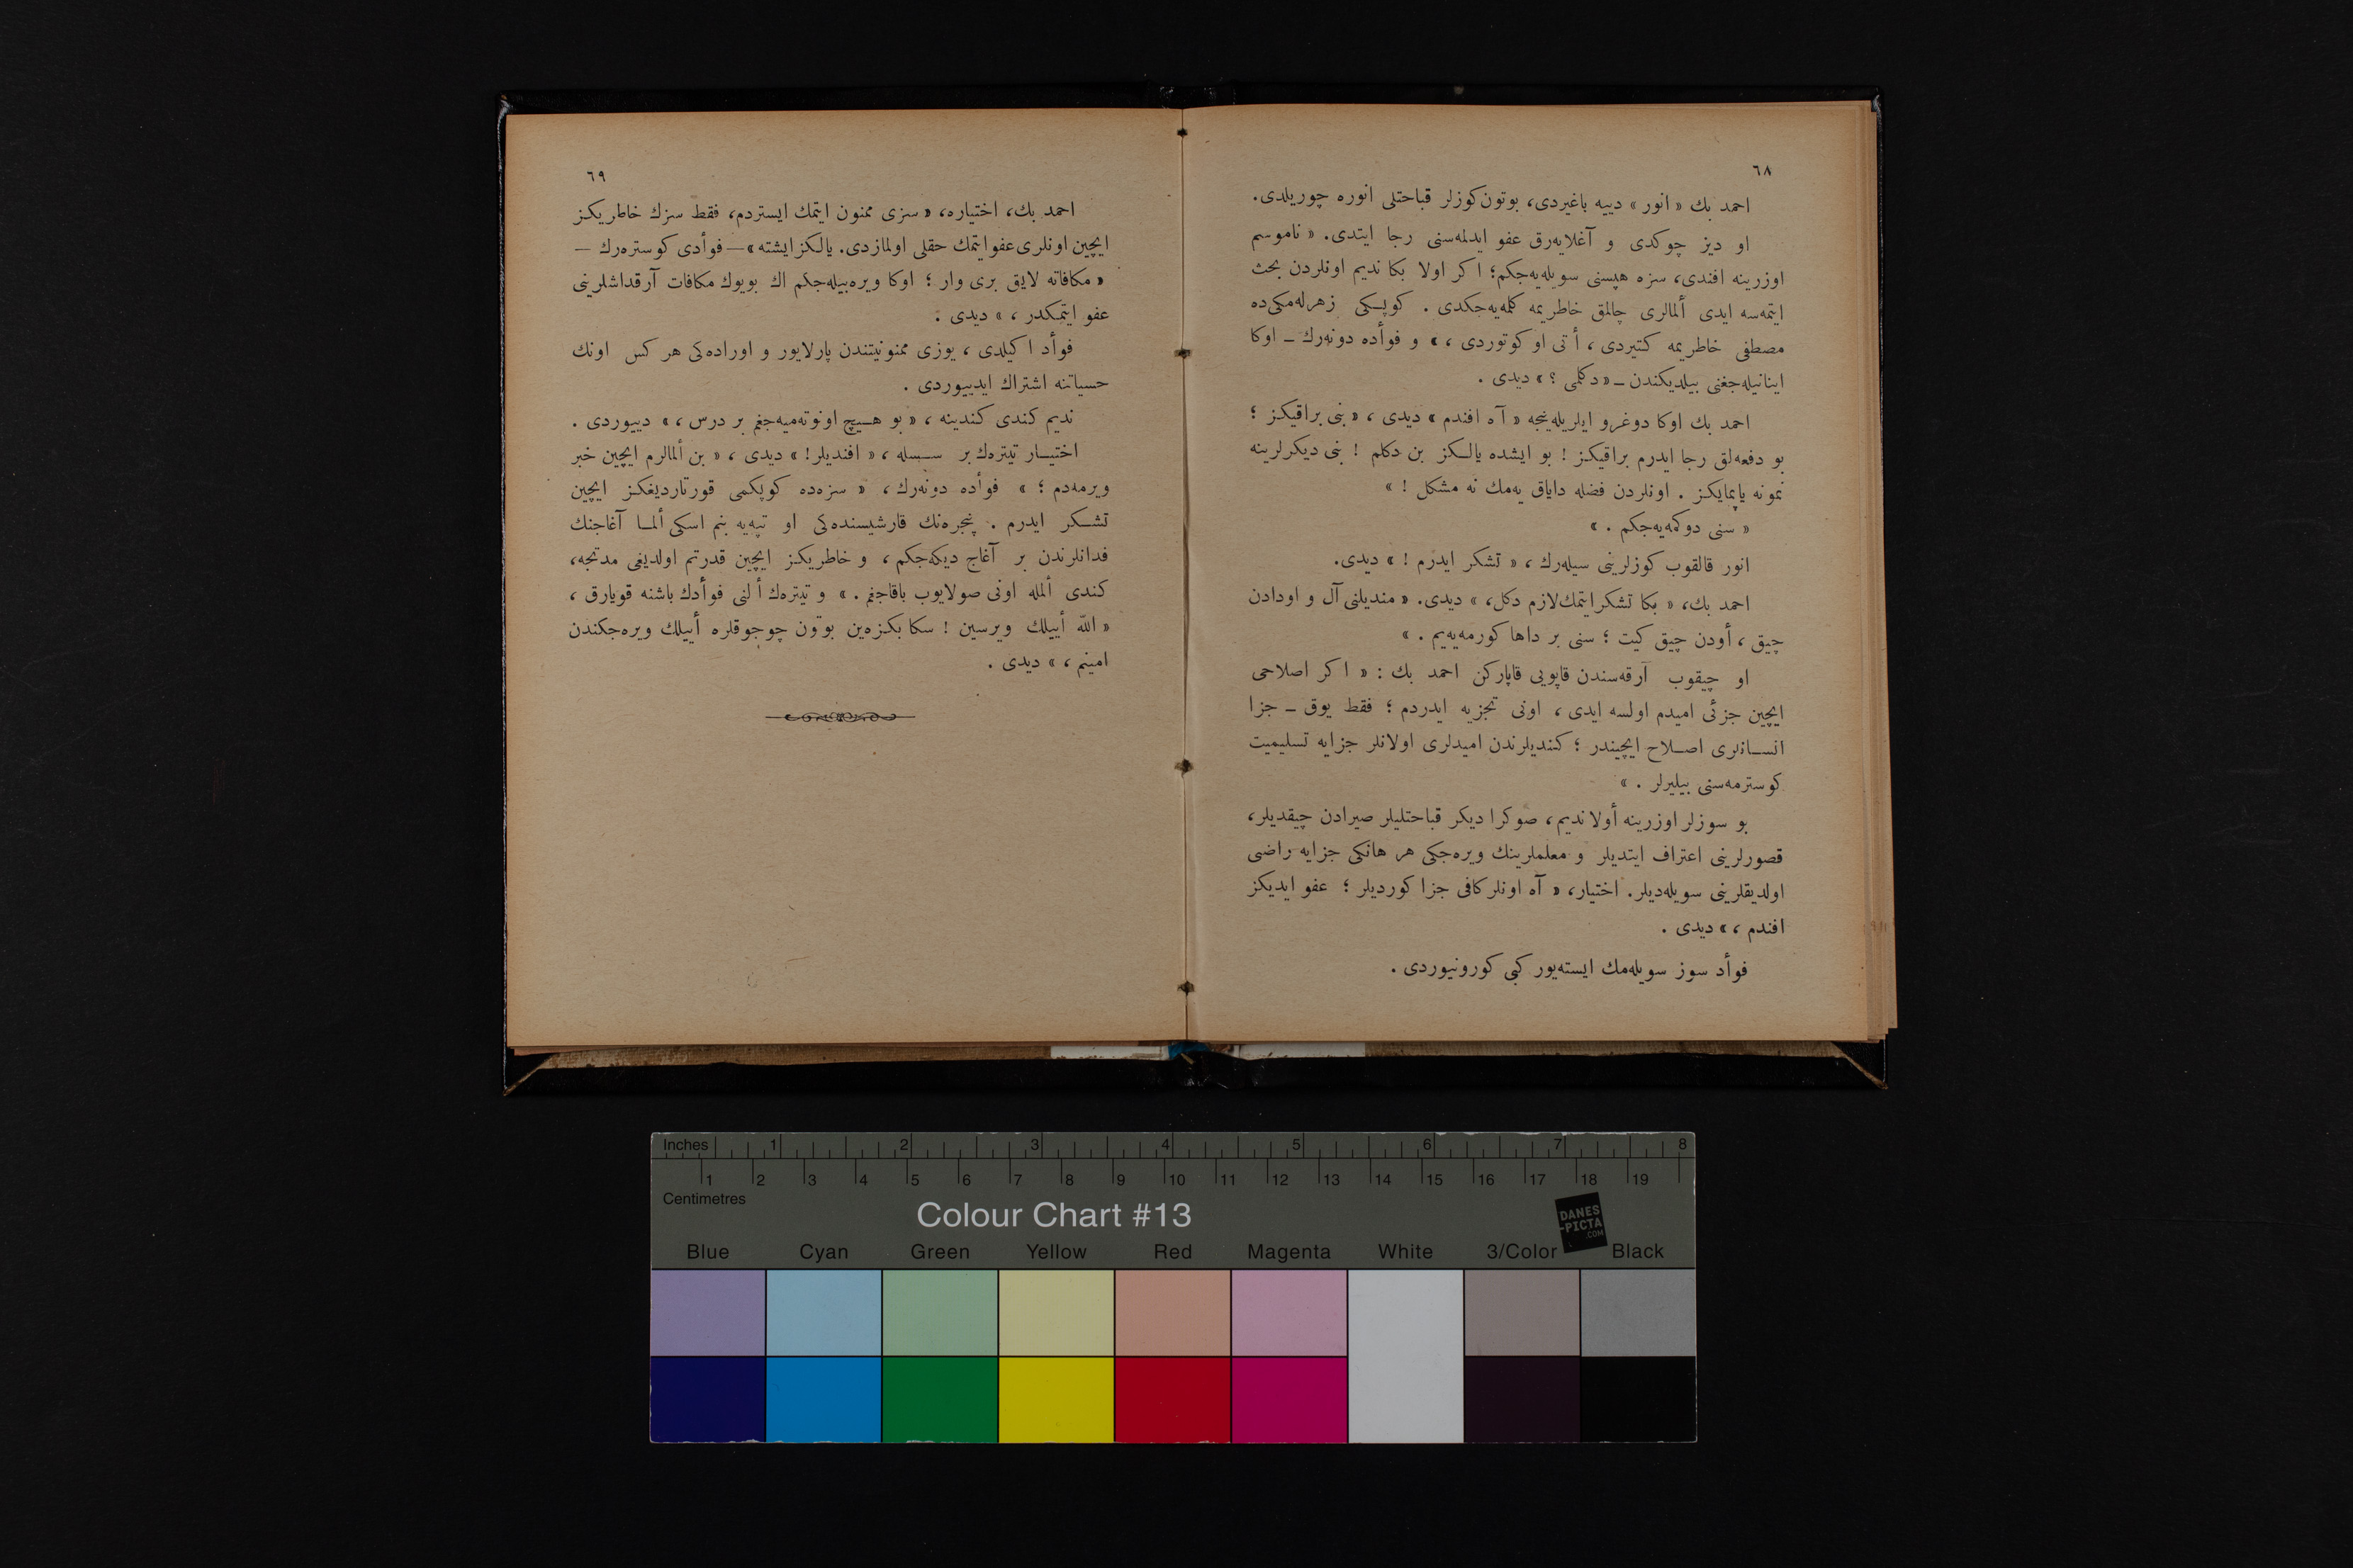 ٦٨
احمد بك « انور » دييه باغيردى، بوتون كوزلر قباحتلى انوره چوريلدى.
او ديز چوكدى و آغلايه‌رق عفو ايدلمه‌سنى رجا ايتدى. « ناموسم
اوزرينه افندى، سزه هپسنى سويله‌يه‌جكم؛ اكر اولا بكا نديم اونلردن بحث
ايتمه‌سه ايدى ألمالرى چالمق خاطريمه كلمه‌يه‌جكدى . كوپكى زهرله‌مكى‌ده
مصطفى خاطريمه كتيردى ، أتى او كوتوردى ، » و فوأده دونه‌رك ـ اوكا
اينانيله‌جغنى بيلديكندن ـ « دكلمى ؟ » ديدى .
احمد بك اوكا دوغرو ايلريله‌ينجه « آه افندم » ديدى ، « بنى براقيكز ؛
بو دفعه‌لق رجا ايدرم براقيكز ! بو ايشده يالكز بن دكلم ! بنى ديكرلرينه
نمونه ياپمايكز . اونلردن فضله داياق يه‌مك نه مشكل ! »
« سنى دوكمه‌يه‌جكم . »
انور قالقوب كوزلرينى سيله‌رك ، « تشكر ايدرم ! » ديدى.
احمد بك، « بكا تشكر ايتمك لازم دكل، » ديدى. « منديلنى آل و اودادن
چيق ، أودن چيق كيت ؛ سنى بر داها كورمه‌يه‌يم . »
او چيقوب آرقه‌سندن قاپويى قاپاركن احمد بك : « اكر اصلاحى
ايچين جزئى اميدم اولسه ايدى ، اونى تجزيه ايدردم ؛ فقط يوق ـ جزا
انسانلرى اصلاح ايچيندر ؛ كنديلرندن اميدلرى اولانلر جزايه تسليميت
كوسترمه‌سنى بيليرلر . »
بو سوزلر اوزرينه أولا نديم ، صوكرا ديكر قباحتليلر صيرادن چيقديلر،
قصورلرينى اعتراف ايتديلر و معلملرينك ويره‌جكى هر هانكى جزايه راضى
اولديقلرينى سويله‌ديلر. اختيار، « آه اونلر كافى جزا كورديلر ؛ عفو ايديكز
افندم ، » ديدى .
فوأد سوز سويله‌مك ايسته‌يور كبى كورونيوردى .
٦٩
احمد بك، اختياره، « سزى ممنون ايتمك ايستردم، فقط سزك خاطريكز
ايچين اونلرى عفو ايتمك حقلى اولمازدى. يالكز ايشته » — فوأدى كوستره‌رك —
« مكافاته لايق برى وار ؛ اوكا ويره‌بيله‌جكم اك بويوك مكافات آرقداشلرينى
عفو ايتمكدر ، » ديدى .
فوأد اكيلدى ، يوزى ممنونيتندن پارلايور و اوراده‌كى هر كس اونك
حسياتنه اشتراك ايدييوردى .
نديم كندى كندينه ، « بو هيچ اونوته‌ميه‌جغم بر درس ، » دييوردى .
اختيار تيتره‌ك بر سسله ، « افنديلر! » ديدى ، « بن ألمالرم ايچين خبر
ويرمه‌دم ؛ » فوأده دونه‌رك ، « سزه‌ده كوپكمى قورتارديغكز ايچين
تشكر ايدرم . پنجره‌نك قارشيسنده‌كى او تپه‌يه بنم اسكى ألما آغاجنك
فدانلرندن بر آغاج ديكه‌جكم ، و خاطريكز ايچين قدرتم اولديغى مدتجه،
كندى ألمله اونى صولايوب باقاجغم . » و تيتره‌ك ألنى فوأدك باشنه قويارق ،
« الله أييلك ويرسين ! سكا بكزه‌ين بوتون چوجوقلره أييلك ويره‌جكندن
امينم ، » ديدى .
Inches 1 2 3 4 5 6 7 8
1 2 3 4 5 6 7 8 9 10 11 12 13 14 15 16 17 18 19
Centimetres
Colour Chart #13
DANES
-PICTA
.COM
Blue Cyan Green Yellow Red Magenta White 3/Color Black